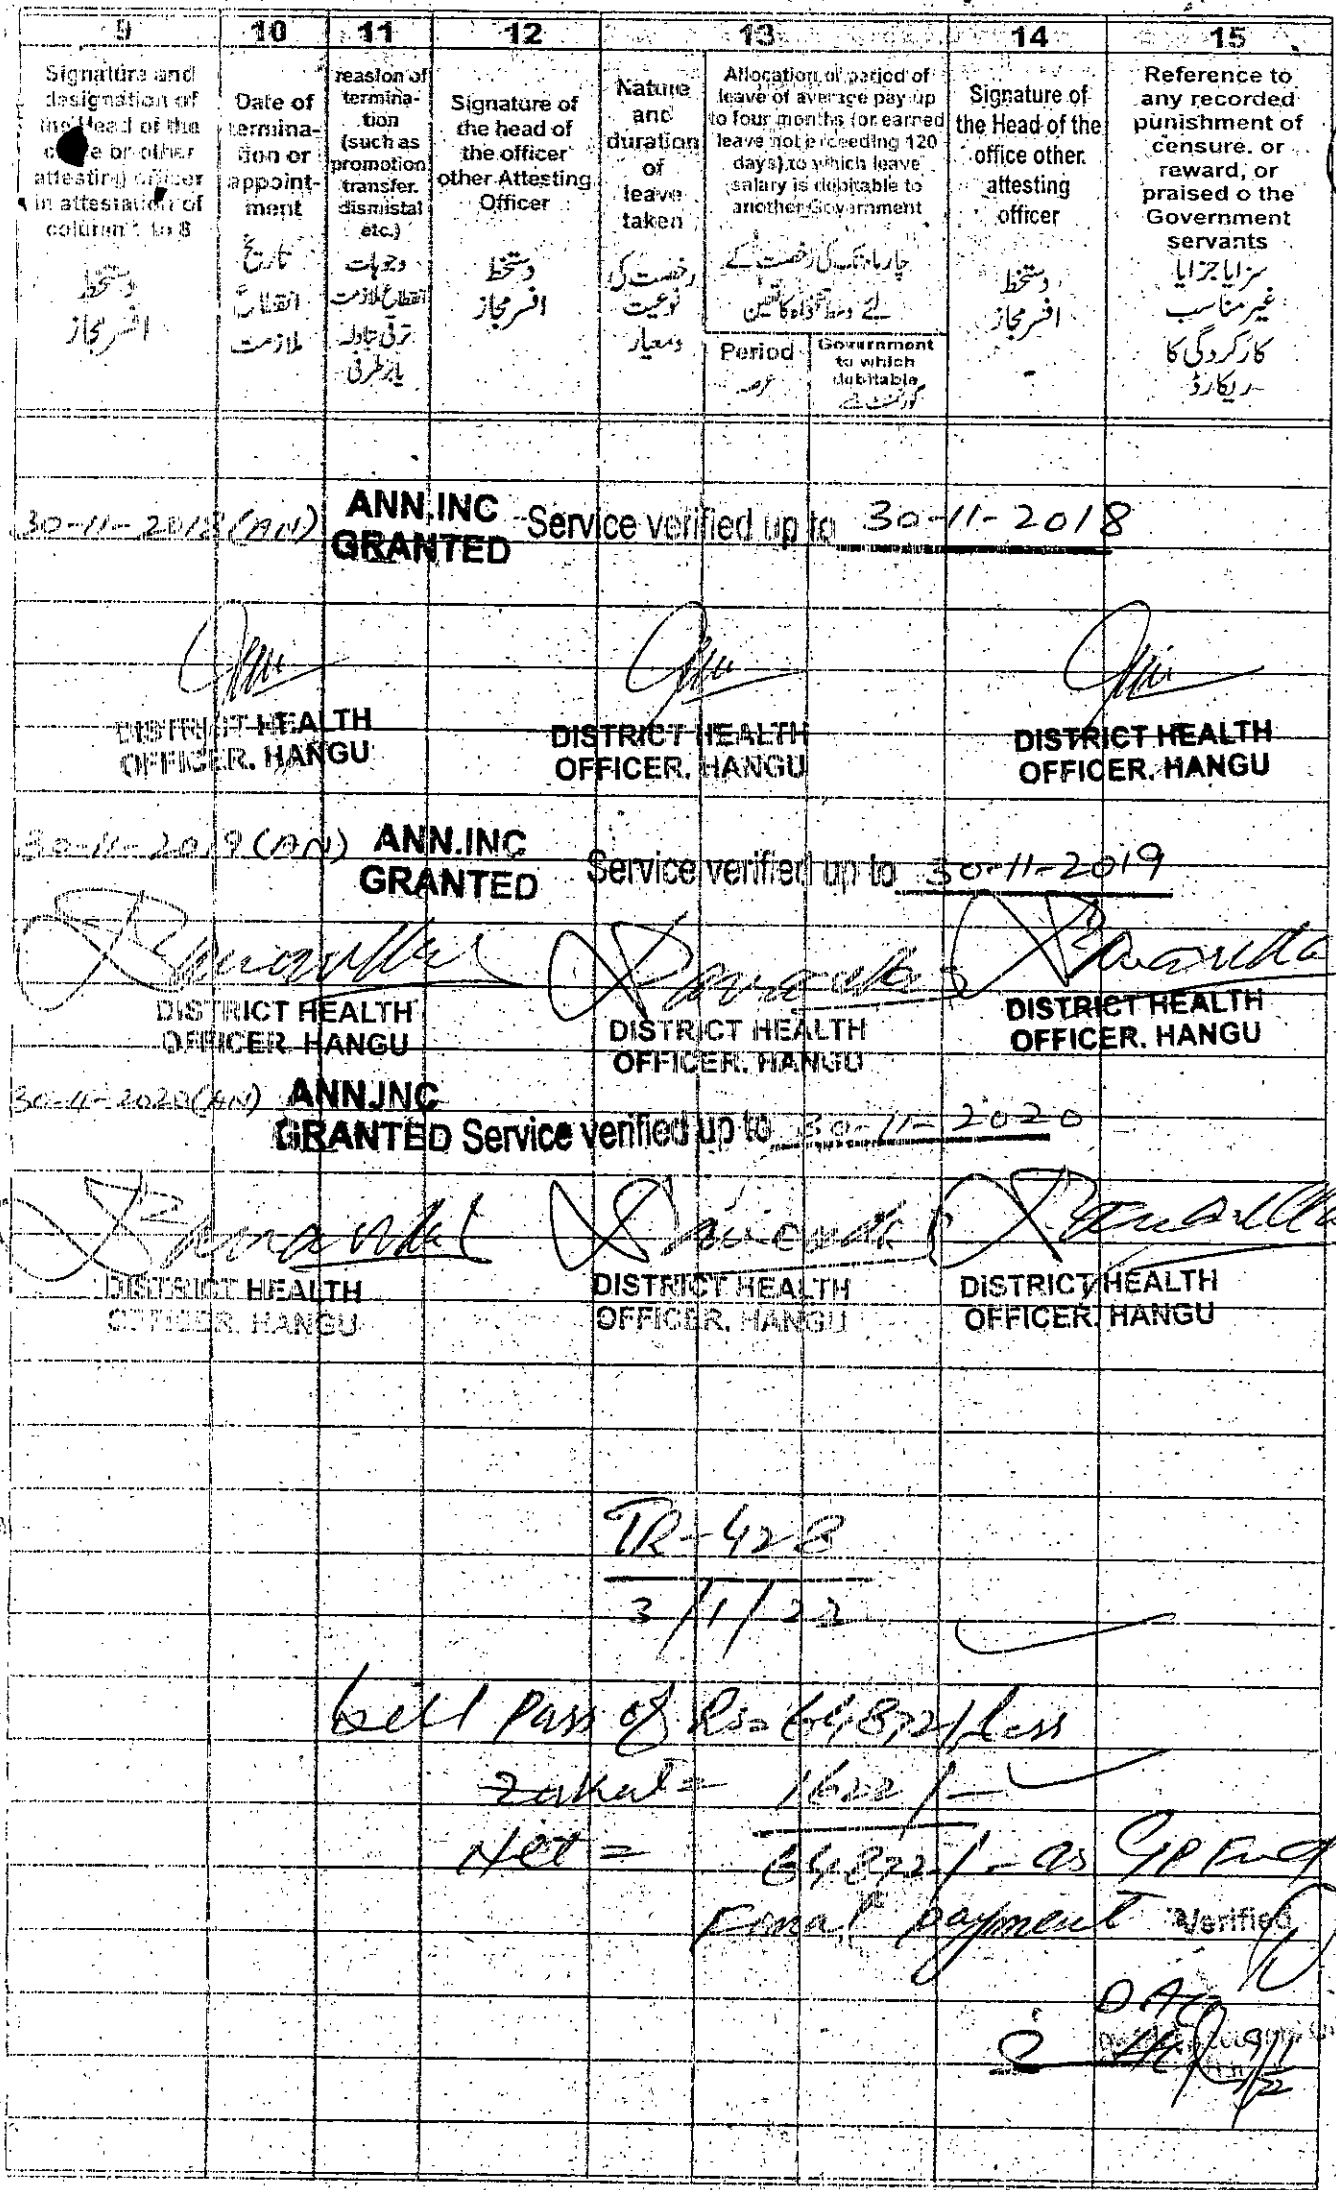 9 10 11 12 13 14 15
Signature and
designation of
the Head of the
office or other
attesting officer
in attestation of
column 1 to 8
دستخط
افسر مجاز
Date of
termina-
tion or
appoint-
ment
تاریخ
انقطاع
ملازمت
reasion of
termina-
tion
(such as
promotion
transfer.
dismistal
etc.)
وجوہات
انقطاع ملازمت
ترقی تبادلہ
یا برطرفی
Signature of
the head of
the officer
other Attesting
Officer
دستخط
افسر مجاز
Nature
and
duration
of
leave
taken
رخصت کی
نوعیت
ومعیار
Allocation of period of
leave of average pay up
to four months (or earned
leave not exceeding 120
days) to which leave
salary is debitable to
another Government
چار ماہ تک کی رخصت کے
لئے
Period
عرصہ
Government
to which
debitable
Signature of
the Head of the
office other.
attesting
officer
دستخط
افسر مجاز
Reference to
any recorded
punishment of
censure. or
reward, or
praised o the
Government
servants
سزا یا جزا یا
غیر مناسب
کارکردگی کا
ریکارڈ
30-11-2018 (AN) ANN.INC Service verified up to 30-11-2018
GRANTED
DISTRICT HEALTH DISTRICT HEALTH DISTRICT HEALTH
OFFICER. HANGU OFFICER. HANGU OFFICER. HANGU
30-11-2019 (AN) ANN.INC Service verified up to 30-11-2019
GRANTED
DISTRICT HEALTH DISTRICT HEALTH DISTRICT HEALTH
OFFICER. HANGU OFFICER. HANGU OFFICER. HANGU
30-11-2020 (AN) ANN.INC
GRANTED Service verified up to 30-11-2020
DISTRICT HEALTH DISTRICT HEALTH DISTRICT HEALTH
OFFICER. HANGU OFFICER. HANGU OFFICER. HANGU
TR-428
3/1/22
bill Pass of Rs= 64872/ less
Zakat = 1622/-
Net = 64872/- as GP Fund
Final payment Verified